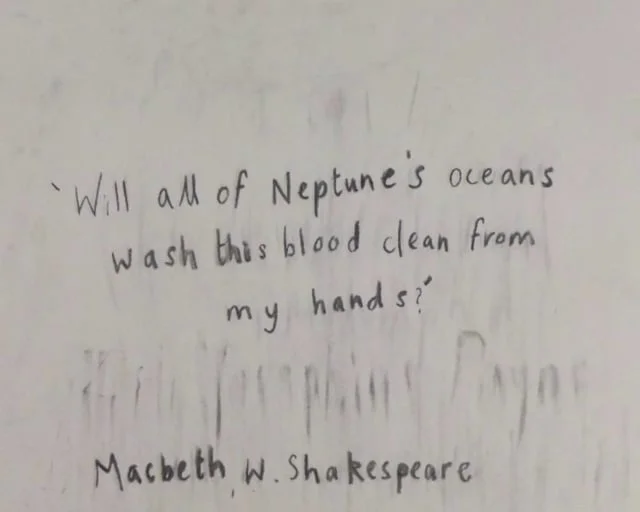 'Will all of Neptune's oceans
wash this blood clean from
my hands?'
Macbeth, W. Shakespeare